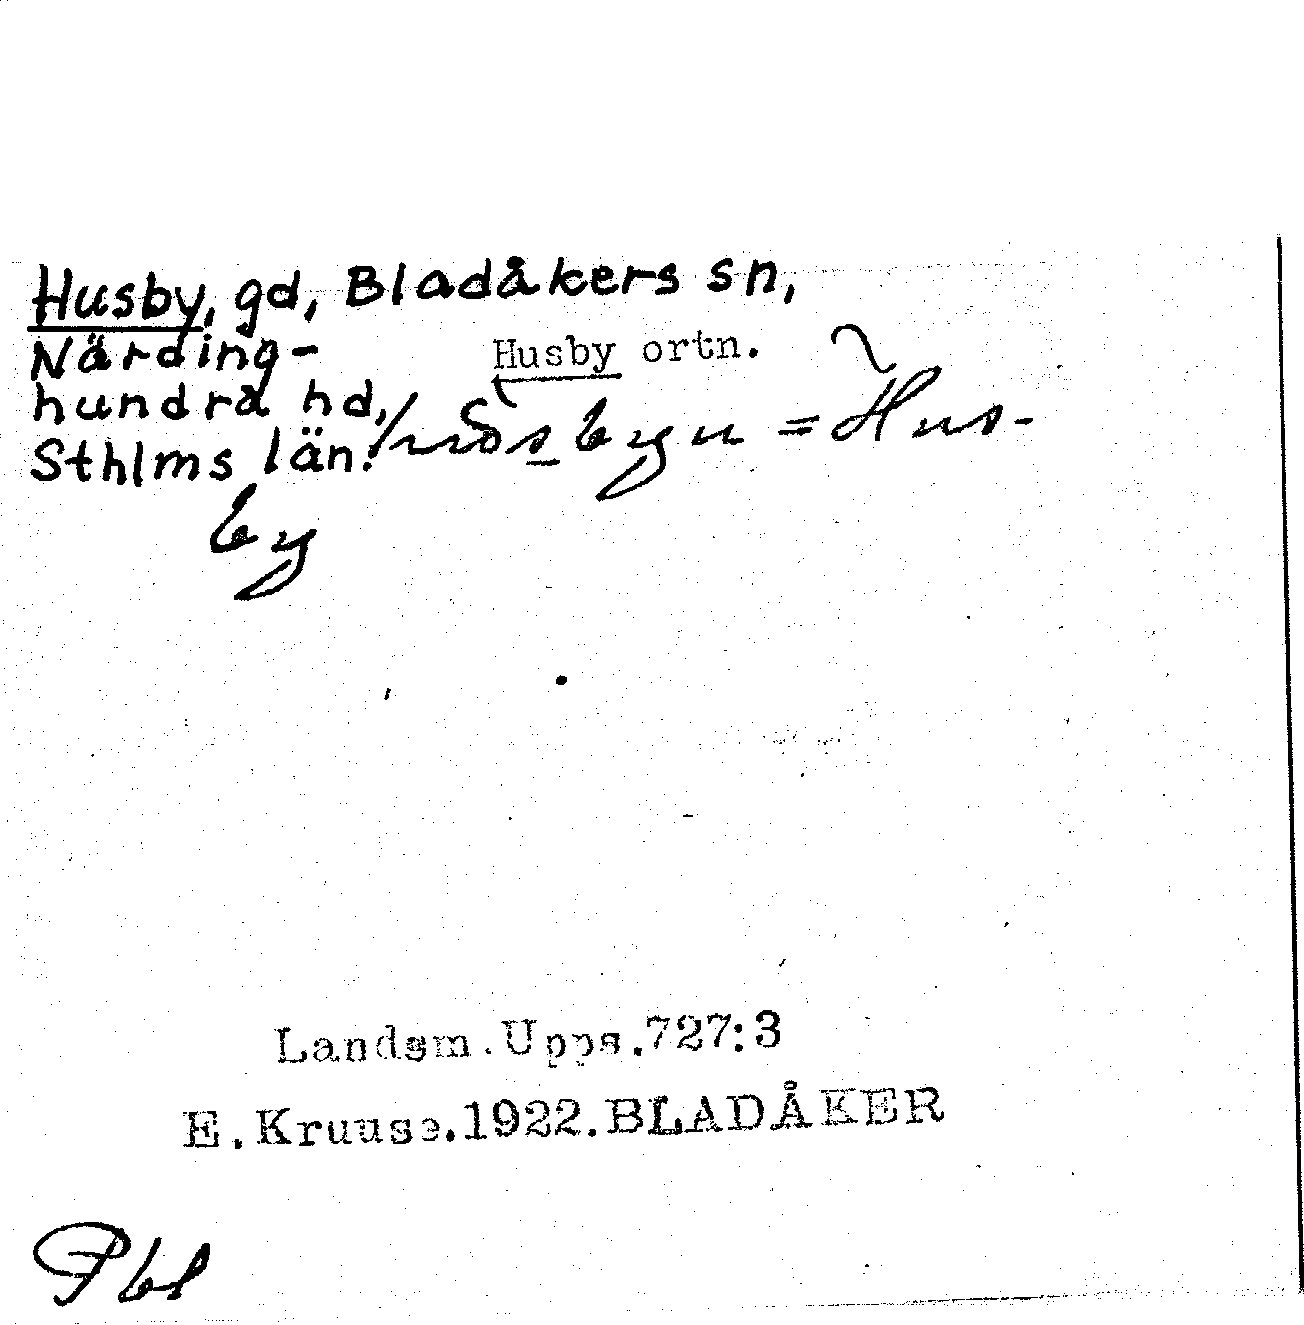 Husby, gd, Bladåkers sn,
Närding-
hundra hd,
Sthlms län.
Husby ortn.
= Hus-
by
Landsm.Upps.727:3
E.Kruuse.1922.BLADÅKER